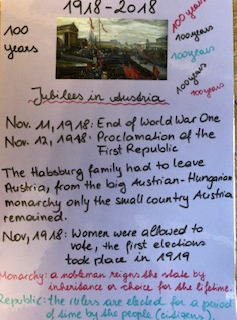 1918-2018
100 years
100 years
100 years
100 years
100 years
100 years
Jubilees in Austria
Nov. 11, 1918: End of World War One
Nov. 12, 1918: Proclamation of the
First Republic
The Habsburg family had to leave
Austria, from the big Austrian-Hungarian
monarchy only the small country Austria
remained.
Nov, 1918: Women were allowed to
vote, the first elections
took place in 1919
Monarchy: a nobleman reigns the state by
inheritance or choice for the lifetime.
Republic: the rulers are elected for a period
of time by the people (citizens).